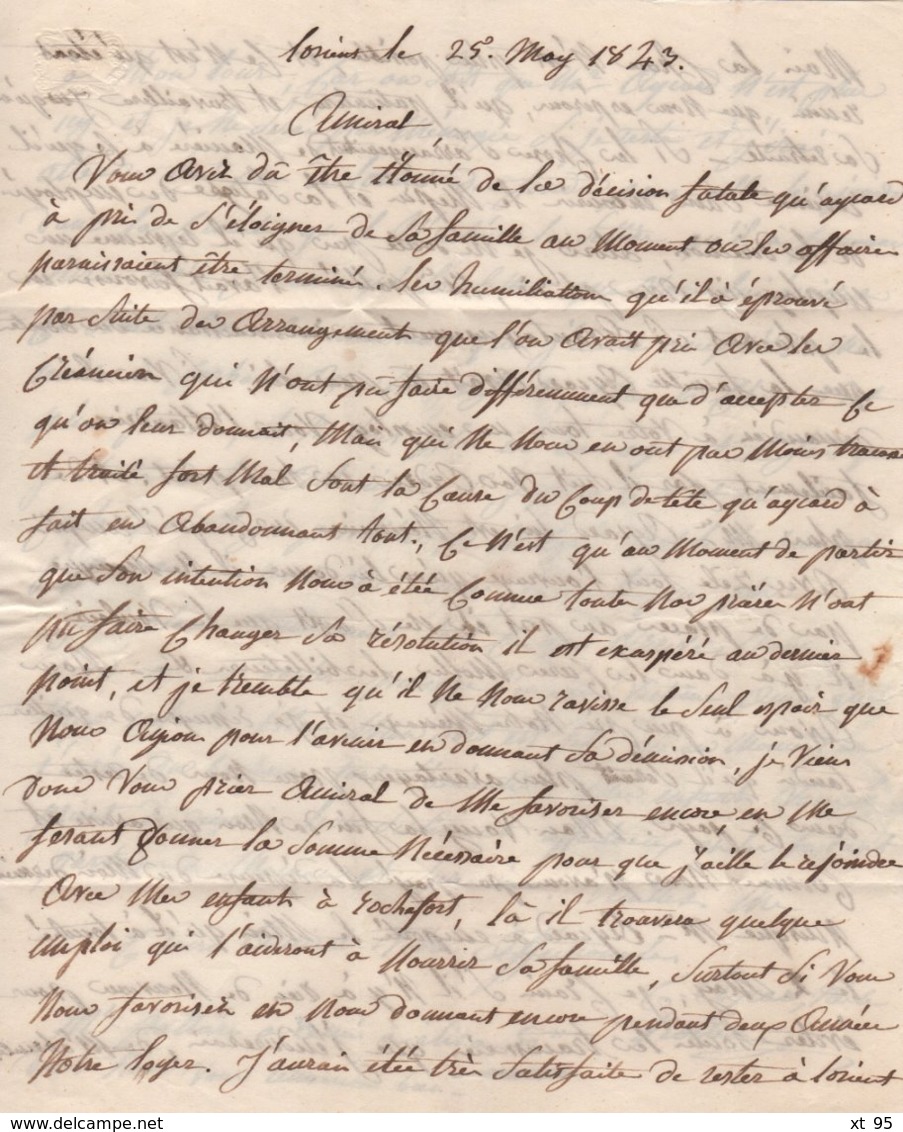 Lorient le 25. May 1843.
Amiral
Vous avez dû être étonné de la décision fatale qu'aycard
à pris de s'éloigner de sa famille au moment ou les affaires
paraissaient être terminé. les humiliations qu'il à éprouvé
par suite des arrangement que l'on avait pris avec les
Créanciers qui n'ont pu faire différemment que d'accepter ce
qu'on leur donnait, mais qui ne nous en ont pas moins
et traité fort mal sont la cause du coup de tête qu'aycard à
fait en abandonnant tout., ce n'est qu'au moment de partir
que son intention nous à étée connue toutes nos prières n'ont
pu faire changer sa résolution il est exaspéré au dernier
point, et je tremble qu'il ne nous ravisse le seul espoir que
nous ayions pour l'avenir en donnant sa démission, je viens
donc vous prier amiral de me favoriser encore en me
fesant donner la somme nécessaire pour que j'aille le rejoindre
avec mes enfants à rochefort, là il trouvera quelque
emploi qui l'aideront à nourrir sa famille, surtout si vous
nous favorisez en nous donnant encore pendant deux année
notre loyer. J'aurais étée très satisfaite de rester à lorient
xt 95